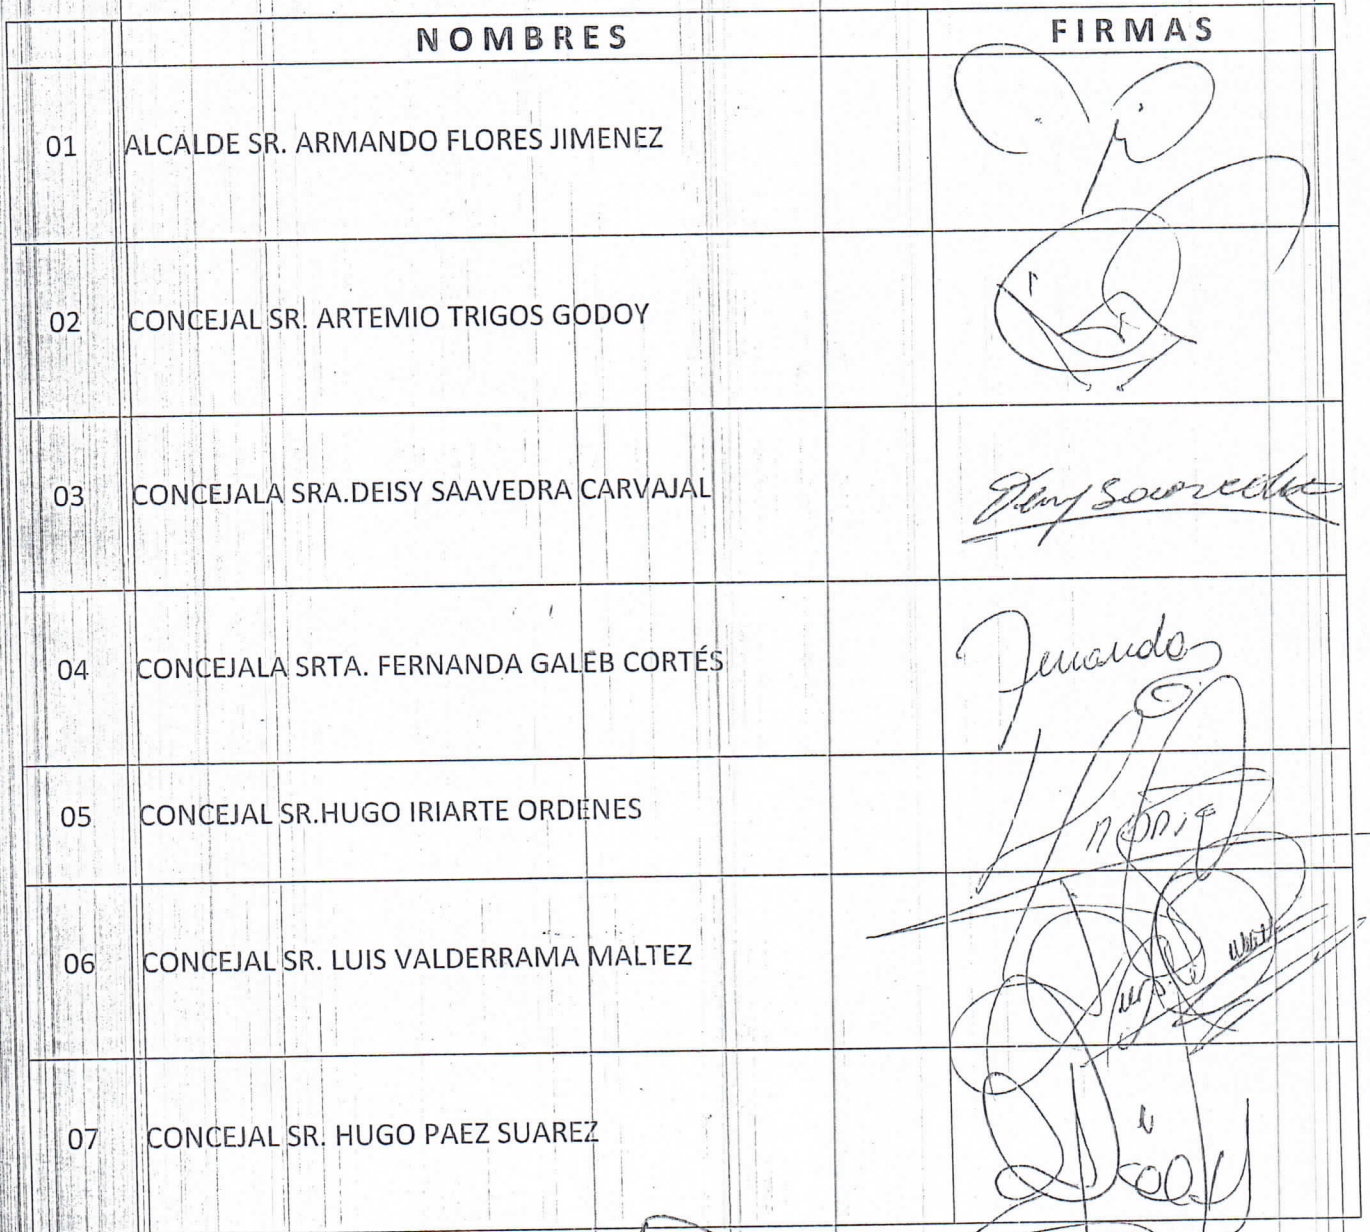 NOMBRES FIRMAS
01 ALCALDE SR. ARMANDO FLORES JIMENEZ
02 CONCEJAL SR. ARTEMIO TRIGOS GODOY
03 CONCEJALA SRA.DEISY SAAVEDRA CARVAJAL Deisy Saavedra
04 CONCEJALA SRTA. FERNANDA GALEB CORTÉS Fernanda
05 CONCEJAL SR.HUGO IRIARTE ORDENES
06 CONCEJAL SR. LUIS VALDERRAMA MALTEZ
07 CONCEJAL SR. HUGO PAEZ SUAREZ